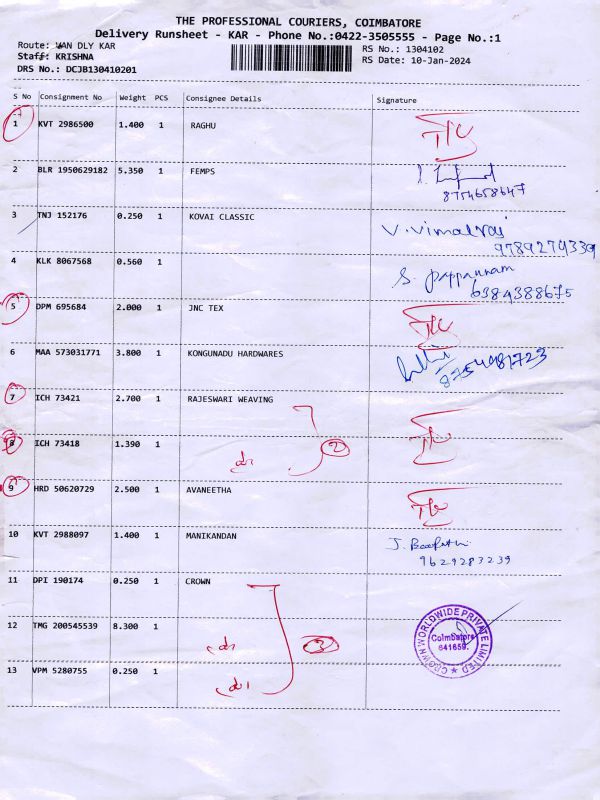 THE PROFESSIONAL COURIERS, COIMBATORE
Delivery Runsheet - KAR - Phone No.:0422-3505555 - Page No.:1
Route: VAN DLY KAR RS No.: 1304102
Staff: KRISHNA RS Date: 10-Jan-2024
DRS No.: DCJB130410201
S No Consignment No Weight PCS Consignee Details Signature
1 KVT 2986500 1.400 1 RAGHU
2 BLR 1950629182 5.350 1 FEMPS
8754658647
3 TNJ 152176 0.250 1 KOVAI CLASSIC V.Vimalraj
9789279339
4 KLK 8067568 0.560 1 S. Pappannam
6384388675
5 DPM 695684 2.000 1 JNC TEX
6 MAA 573031771 3.800 1 KONGUNADU HARDWARES
8754981723
7 ICH 73421 2.700 1 RAJESWARI WEAVING
8 ICH 73418 1.390 1 do 2
9 HRD 50620729 2.500 1 AVANEETHA
10 KVT 2988097 1.400 1 MANIKANDAN J.
9629283239
11 DPI 190174 0.250 1 CROWN
12 TMG 200545539 8.300 1 do 3
13 VPM 5280755 0.250 1 do
CROWN WORLDWIDE PRIVATE LIMITED
Coimbatore
641659.